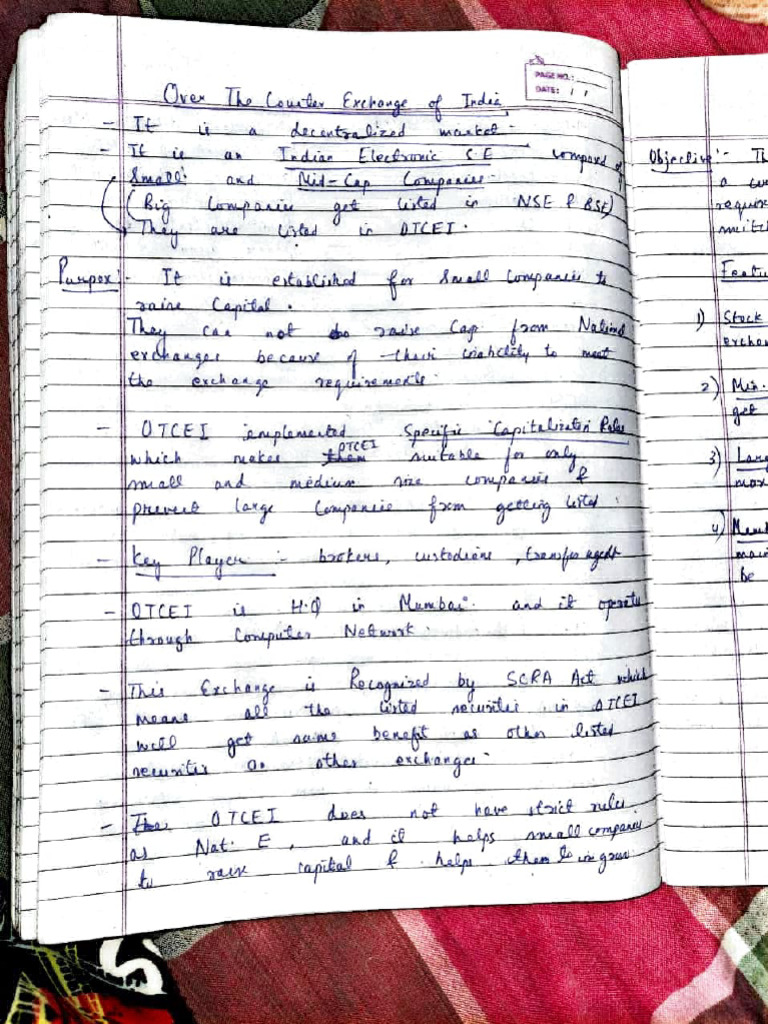 PAGE NO.:
DATE: / /
Over The Counter Exchange of India
- It is a decentralized market.
- It is an Indian Electronic S.E composed of
Small and Mid-Cap Companies.
(Big Companies get listed in NSE & BSE)
They are listed in OTCEI.
Purpose:- It is established for small companies to
raise Capital.
They can not raise Cap from National
exchanges because of their inability to meet
the exchange requirements.
- OTCEI implemented Specific Capitalization Rules
which makes OTCEI suitable for only
small and medium size companies &
prevent large companies from getting listed.
- Key Player :- brokers, custodians, transfer agent
- OTCEI is H.Q in Mumbai. and it operate
through Computer Network.
- This Exchange is Recognized by SCRA Act which
means all the listed securities in OTCEI
will get same benefit as other listed
securities on other exchanges.
- OTCEI does not have strict rules
as Nat. E, and it helps small companies
to raise capital & helps them to grow
Objective:- Th
a
requir
Featu
1) Stock
exchan
2) Min.
get
3) Larg
4) Memb
be